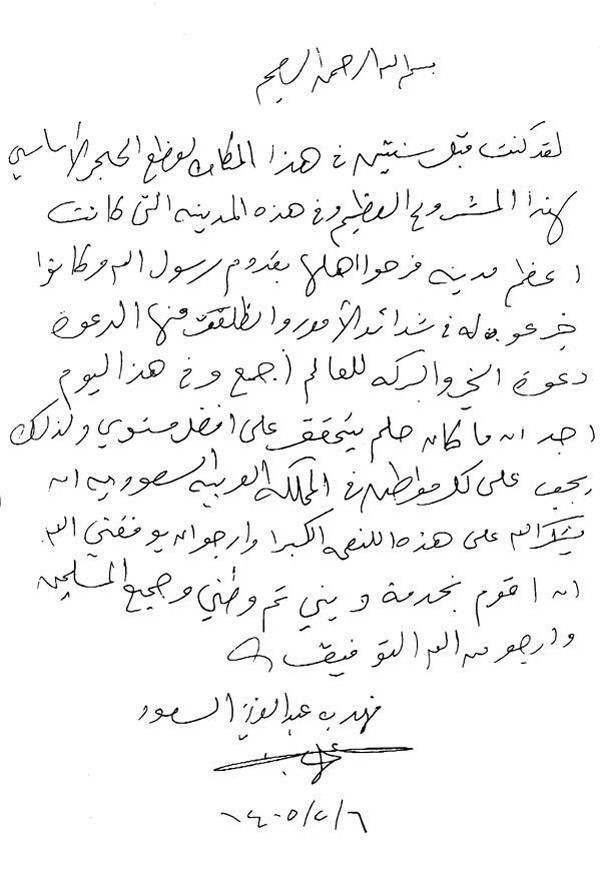 بسم الله الرحمن الرحيم
لقد كنت قبل سنتين في هذا المكان لوضع الحجر الأساسي
لهذا المشروع العظيم وفي هذه المدينه التي كانت
اعظم مدينه فرحوا اهلها بقدوم رسول الله وكانوا
خير عون له في شدائد الأمور وانطلقت منها الدعوة
دعوة الخير والبركه للعالم اجمع وفي هذا اليوم
اجد ان ما كان حلم يتحقق على افضل مستوي ولذلك
يجب على كل مواطن في المملكه العربيه السعوديه ان
يشكر الله على هذه النعمه الكبرا وارجو ان يوفقني الله
ان اقوم بخدمة ديني ثم وطني وجميع المسلمين
وارجو من الله التوفيق
فهد بن عبدالعزيز السعود
١٤٠٥/٢/٦